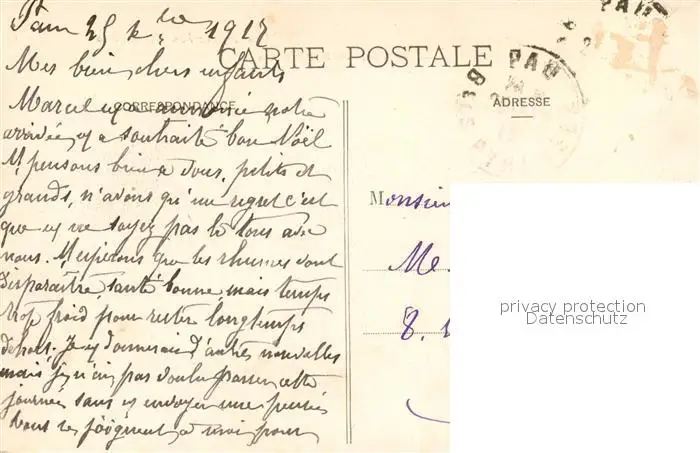 Pau 25 Xbre 1917
CARTE POSTALE
PAU
PAU
Mes bien chers enfants
CORRESPONDANCE
ADRESSE
Marcel notre
arrivée, a souhaité bon Noël
pensons bien à vous, petits et
grands, n'avons qu'un regret c'est
que ne soyez pas là tous avec
nous. espérons que les rhumes vont
disparaître santé bonne mais temps
trop froid pour rester longtemps
dehors. donnerai d'autres nouvelles
mais je n'ai pas voulu passer cette
journée sans envoyer une pensée
tous se joignent à moi pour
Monsieur
Me.
8.
privacy protection
Datenschutz